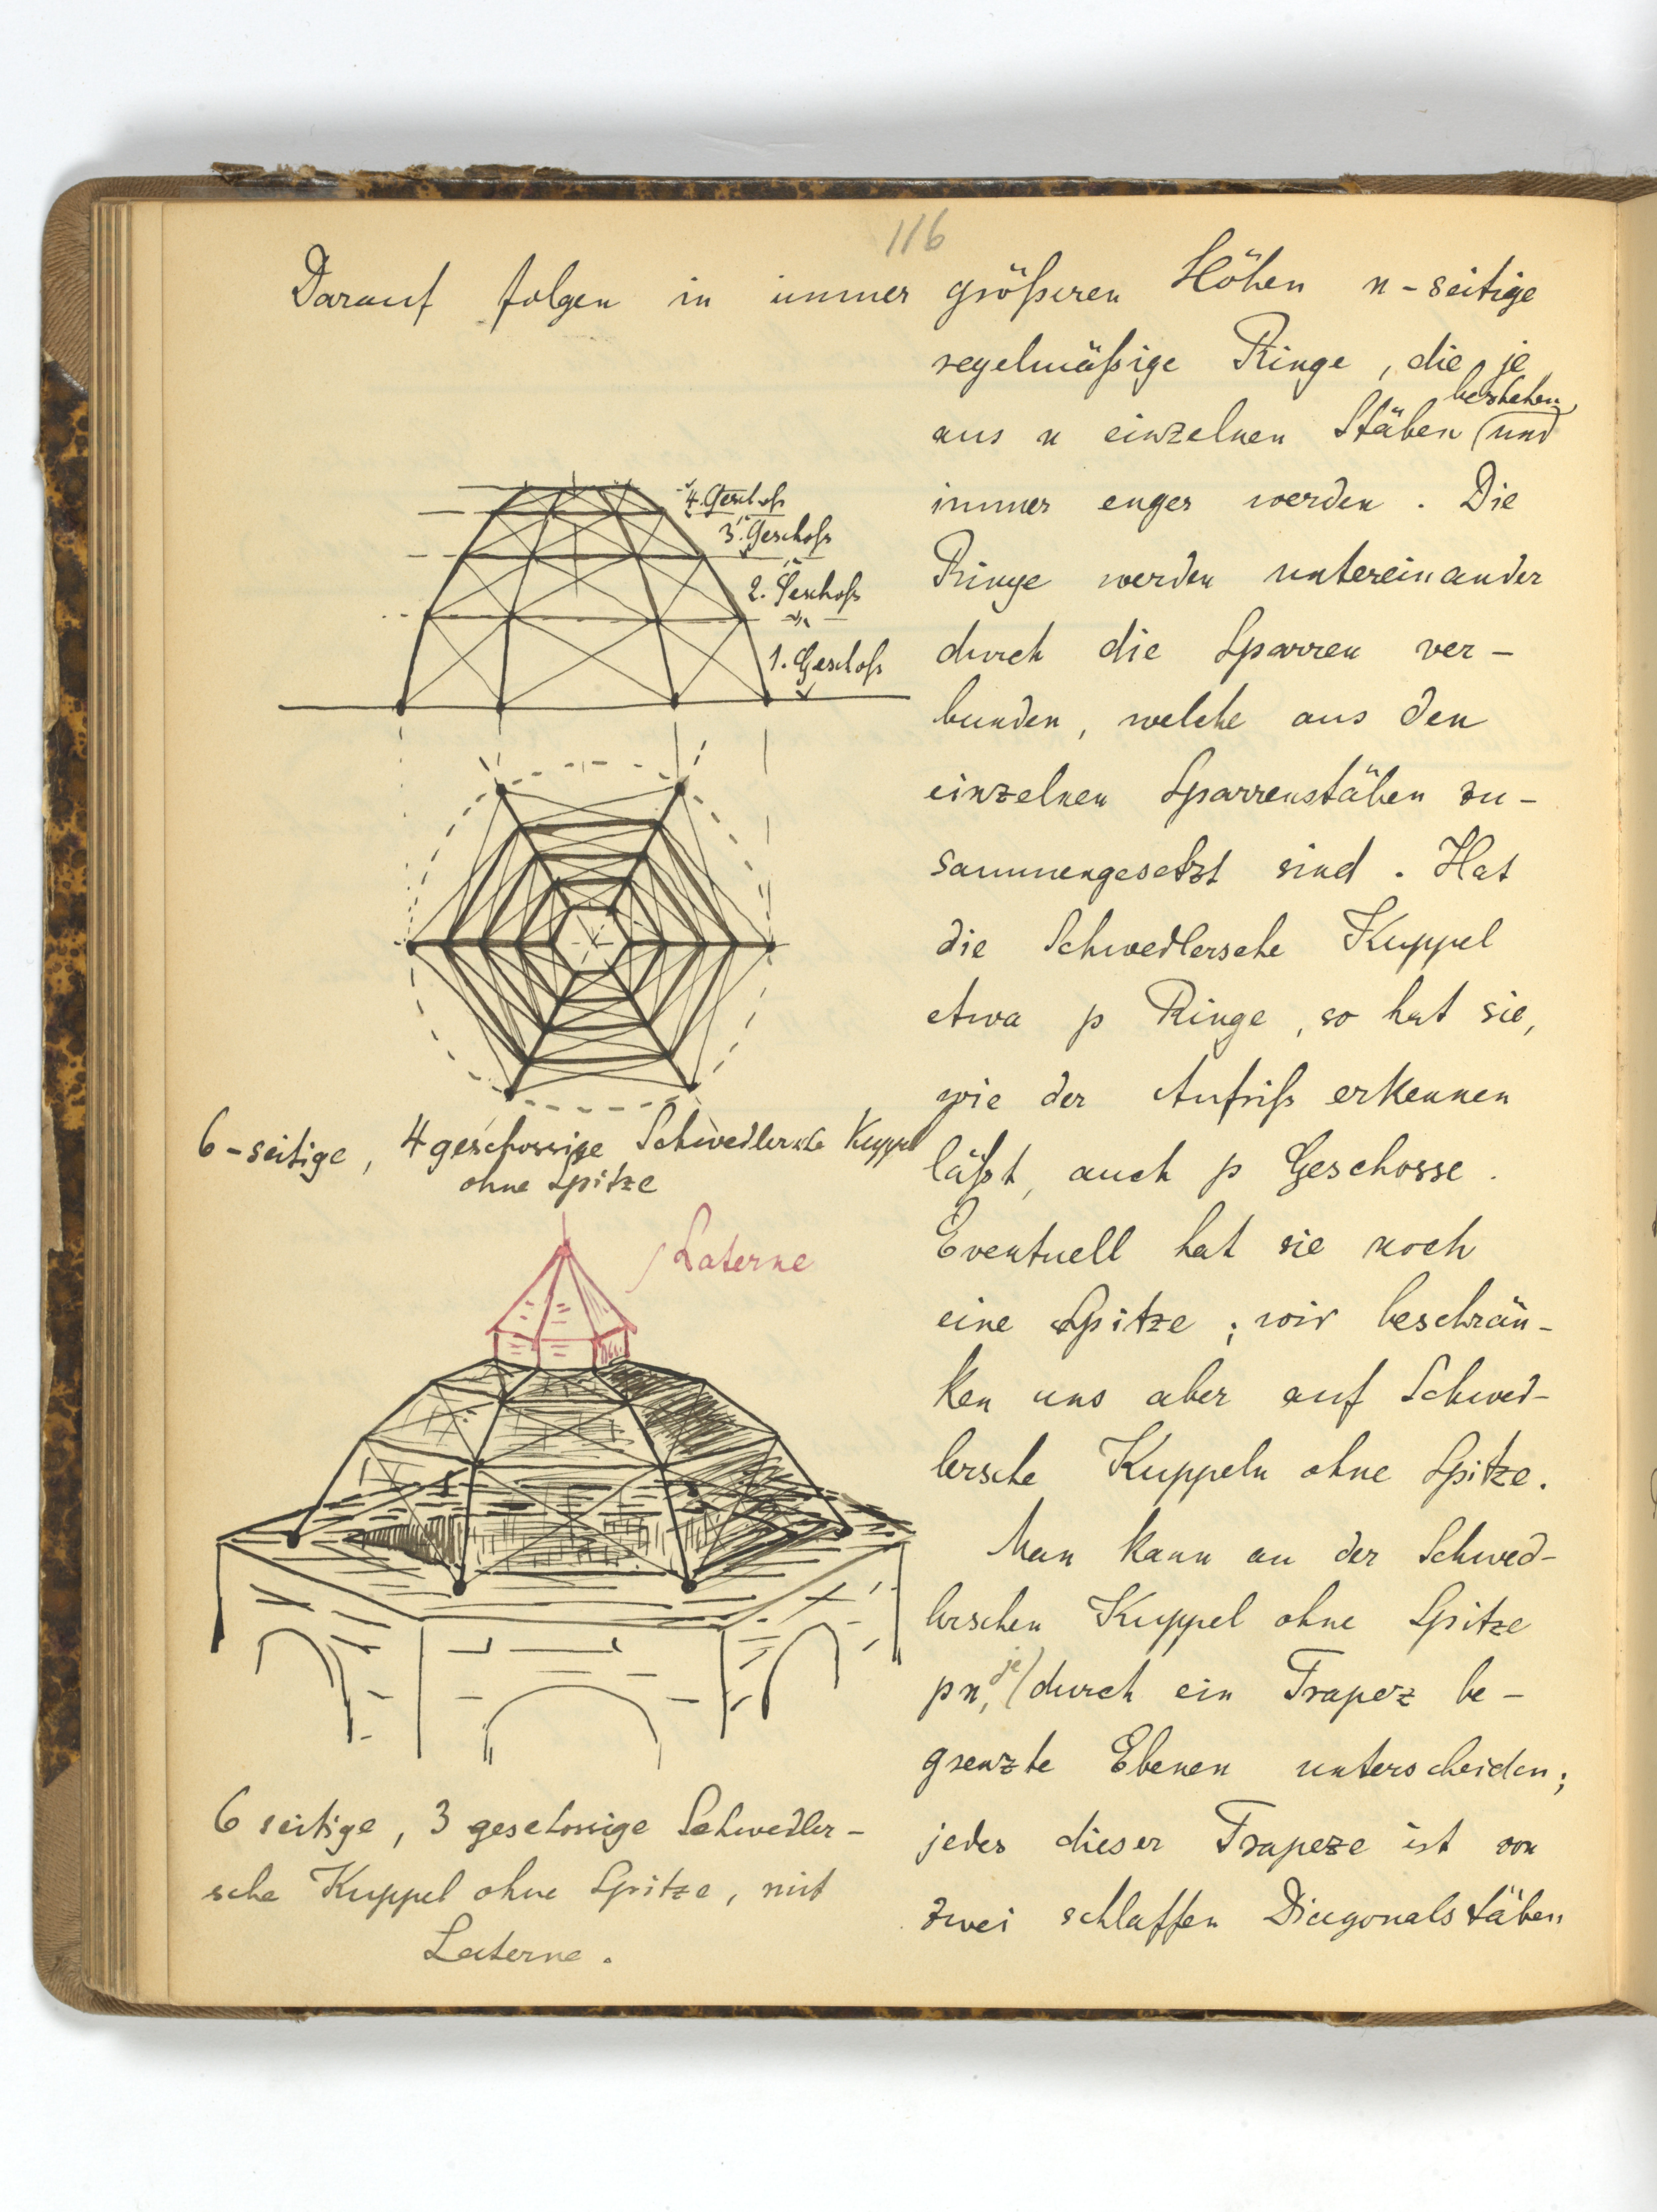 116
Darauf folgen in immer größeren Höhen n-seitige
regelmäßige Ringe, die je
bestehen,
aus n einzelnen Stäben und
immer enger werden. Die
Ringe werden untereinander
durch die Sparren ver-
bunden, welche aus den
einzelnen Sparrenstäben zu-
sammengesetzt sind. Hat
die Schwedlersche Kuppel
etwa p Ringe, so hat sie,
wie der Aufriß erkennen
läßt, auch p Geschosse.
Eventuell hat sie noch
eine Spitze; wir beschrän-
ken uns aber auf Schwed-
lersche Kuppeln ohne Spitze.
Man kann an der Schwed-
lerschen Kuppel ohne Spitze
je
pn, durch ein Trapez be-
grenzte Ebenen unterscheiden;
jedes dieser Trapeze ist von
zwei schlaffen Diagonalstäben
4. Geschoß
3. Geschoß
2. Geschoß
1. Geschoß
6-seitige, 4geschossige Schwedlersche Kuppel
ohne Spitze
Laterne
6 seitige, 3 geschossige Schwedler-
sche Kuppel ohne Spitze, mit
Laterne.